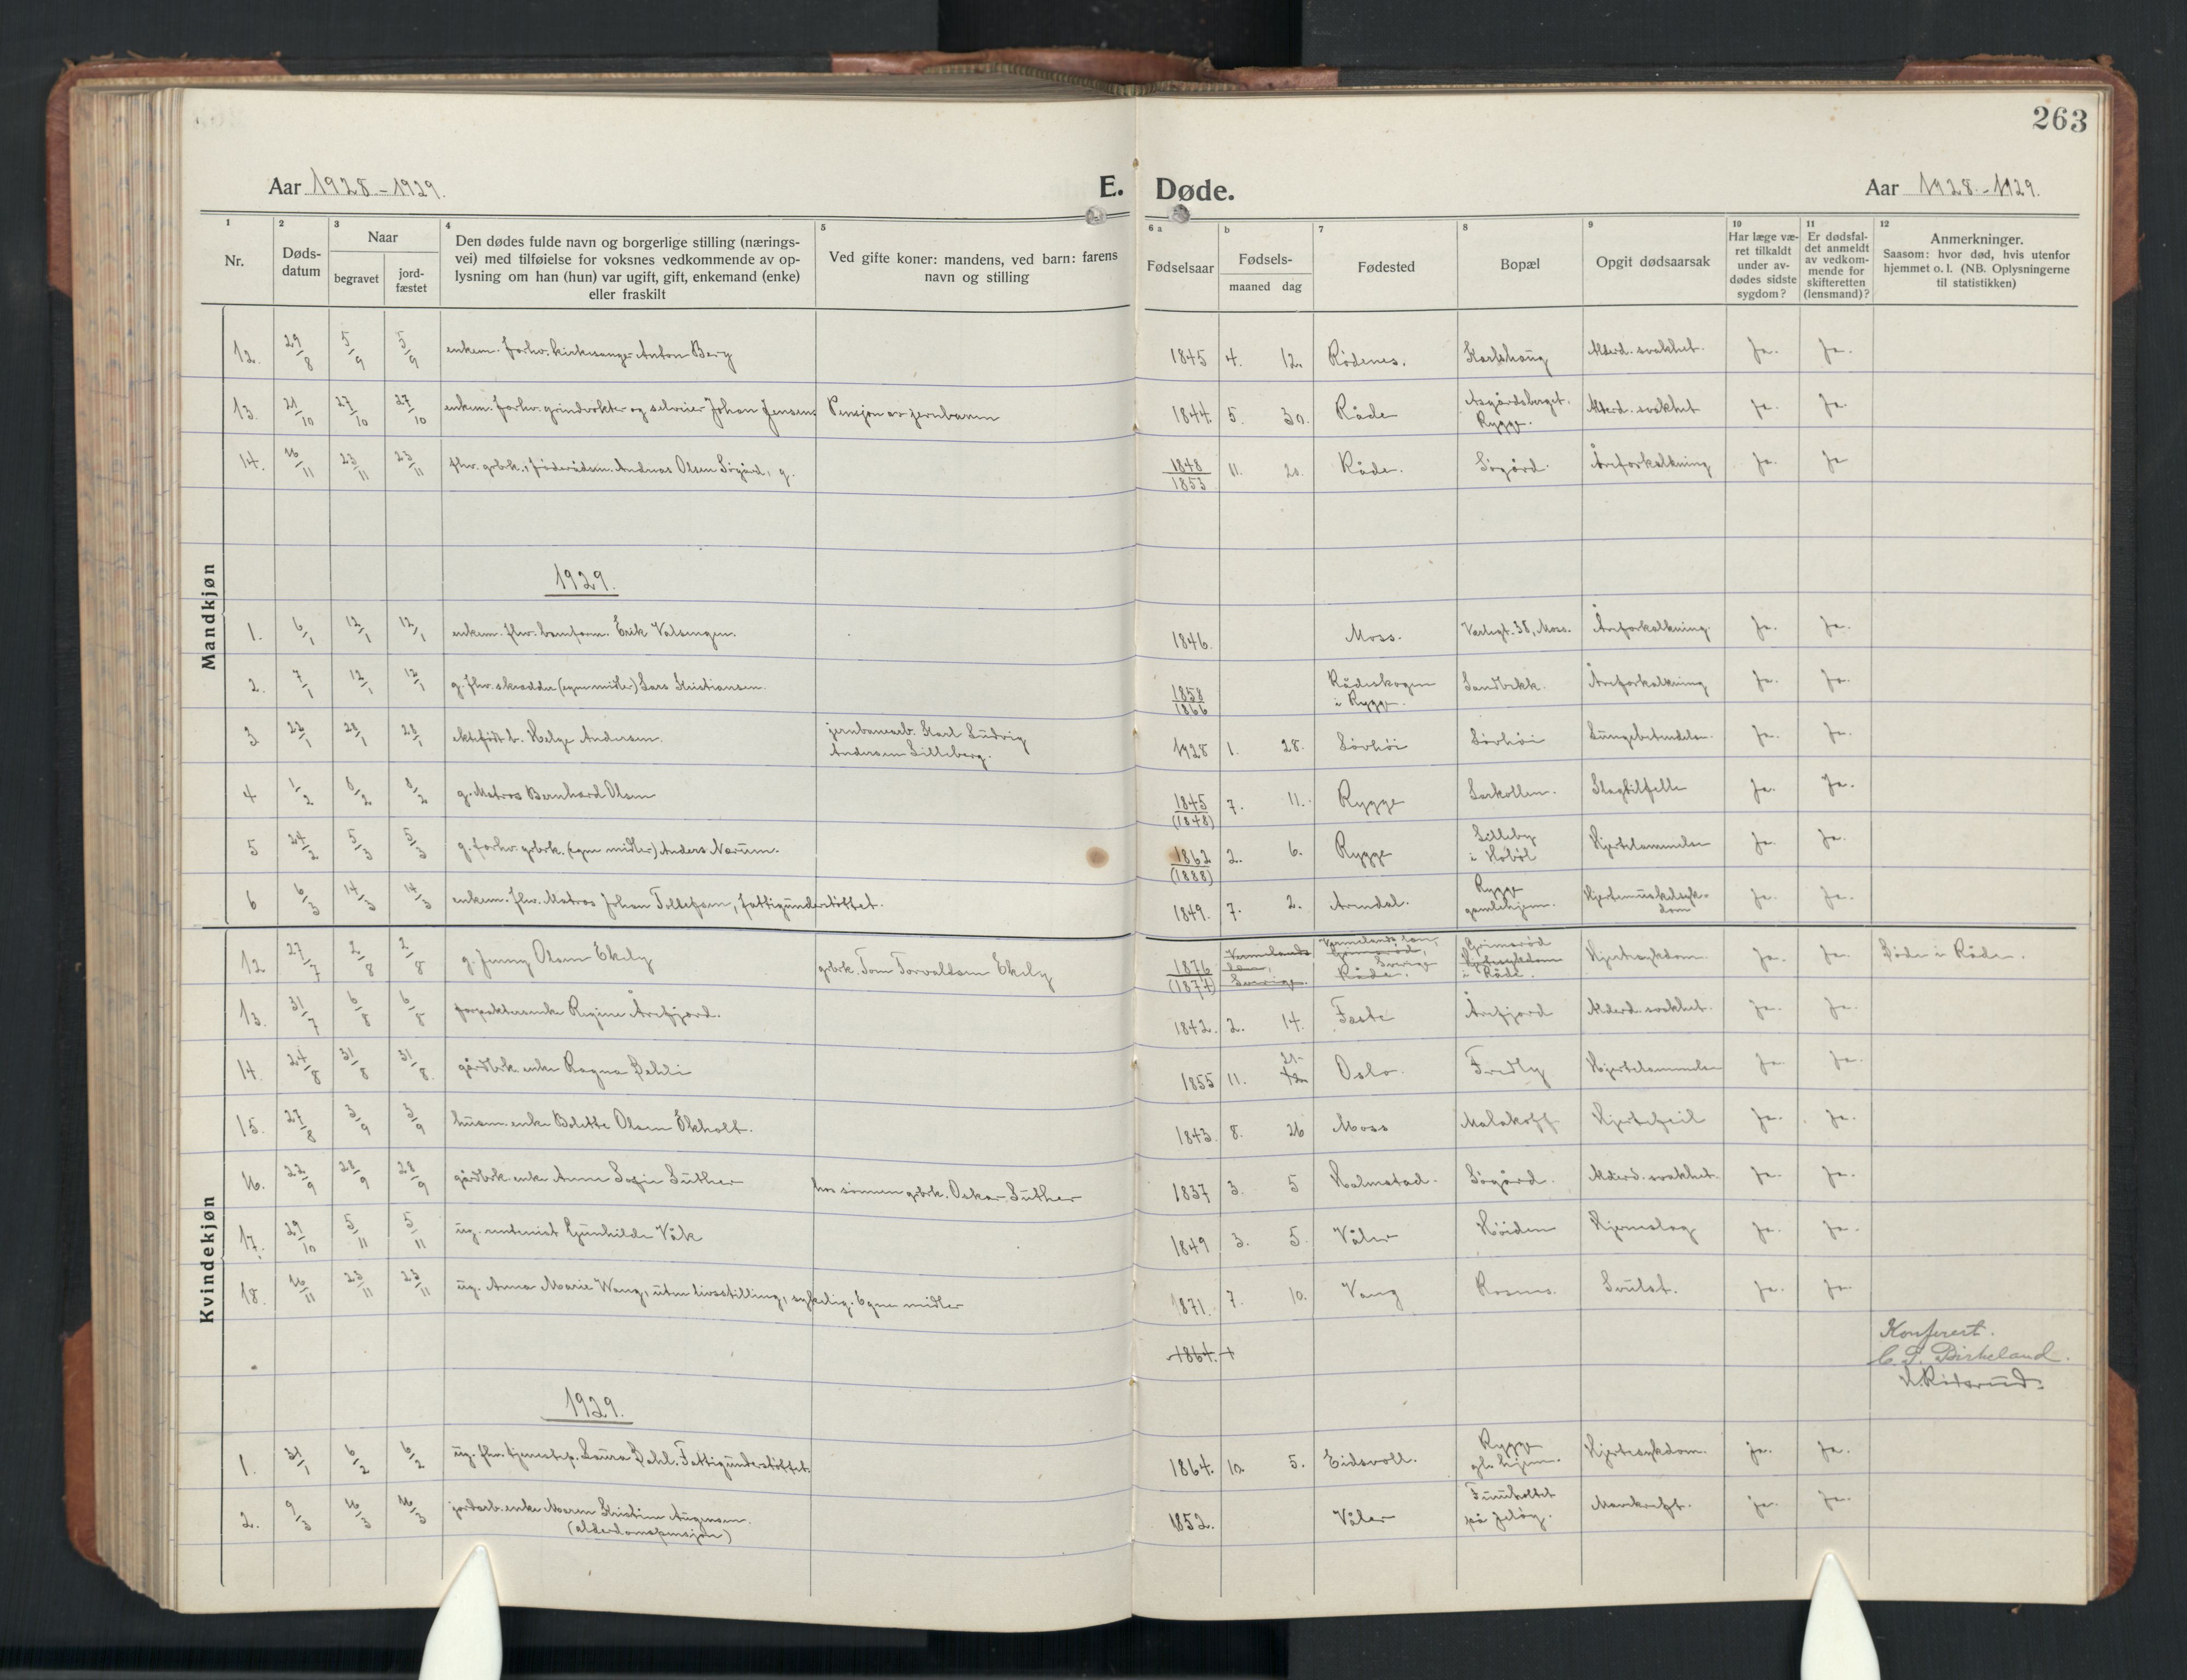 263
Aar 1928-1929.
E. Døde.
Aar 1928.-1929.
1 Nr.
2 Døds-
datum
3 Naar
begravet
jord-
fæstet
4
Den dødes fulde navn og borgerlige stilling (nærings-
vei) med tilføielse for voksnes vedkommende av op-
lysning om han (hun) var ugift, gift, enkemand (enke)
eller fraskilt
5
Ved gifte koner: mandens, ved barn: farens
navn og stilling
6 a Fødselsaar
b Fødsels-
maaned dag
7 Fødested
8 Bopæl
9 Opgit dødsaarsak
10
Har læge væ-
ret tilkaldt
under av-
dødes sidste
sygdom?
11
Er dødsfal-
det anmeldt
av vedkom-
mende for
skifteretten
(lensmand)?
12
Anmerkninger.
Saasom: hvor død, hvis utenfor
hjemmet o. l. (NB. Oplysningerne
til statistikken)
Mandkjøn
12. 29/8 5/9 5/9 enkem. forhv. kirkesanger Anton Berg 1845 4. 12. Rødenes. Karlshaug Alderd. svakhet. Ja. Ja.
13. 21/10 27/10 27/10 enkem. forhv. grindvokter og selveier Johan Jensen Pensjon av jernbanen 1844. 5. 30. Råde Åsgårdsberget. Rygge. Alderd. svakhet ja. Ja.
14. 16/11 23/11 23/11 fhv. grbrk., føderådsm. Andreas Olsen Løgård, g. 1848/1853 11. 20. Råde. Løgård. Åreforkalkning ja. ja
1929.
1. 6/1 12/1 12/1 enkem. fhv. Erik Valsengen. 1846. Moss. Varligt. 38, Moss. Åreforkalkning. Ja. Ja.
2. 7/1 12/1 12/1 g. fhv. skredder (egne midler) Lars Kristiansen. 1858/1866 Rådeskogen i Rygge. Sandbekk. Åreforkalkning Ja. Ja.
3 22/1 28/1 28/1 ektefødt b. Helge Andersen. jernbanearb. Karl Ludvig
Andersen Lilleberg. 1928 1. 28. Løvhøi Løvhøi Lungebetendelse. Ja. Ja.
4 1/2 8/2 8/2 g. Matros Bernhard Olsen 1845/(1848) 7. 11. Rygge Larkollen. Slagtilfelle Ja. Ja.
5 24/2 5/3 5/3 g. forhv. grbrk. (egne midler) Anders Nærum. 1862/(1888) 2. 6. Rygge Lilleby i Hobøl Hjertelammelse Ja. Ja.
6 6/3 14/3 14/3 enkem. fhv. Matros Johan Tollefsen, fattigunderstøttet. 1849. 7. 2. Arendal. Rygge gamlehjem. Hjertemuskelsyk-
dom Ja. Ja.
Kvindekjøn
12 27/7 2/8 2/8 g. Jenny Olsen Ekely grbrk. Tom Torvaldsen Ekely 1876/(1877) Vermelands län, Sverige. Vermelands län, Sverige Råde. Grimsrød i Råde. Hjertesykdom. Ja. Ja. Døde i Råde.
13. 31/7 6/8 6/8 forpakterenke Regine Årefjord. 1842. 2. 14. Årefjord Alderd. svakhet. Ja. Ja.
14. 24/8 31/8 31/8. gårdbrk. enke Ragna Dehli 1855 11. 21 Oslo. Fredly Hjertelammelse Ja. Ja.
15. 27/8 3/9 3/9 husm. enke Bolette Olsen Ekholt. 1843. 8. 26 Moss Malakoff Hjertefeil Ja. Ja.
16. 22/9 28/9 28/9 gårdbrk. enke Anne Sofie Luther hos sønnen grbrk. Oskar Luther 1837 3. 5 Halmstad. Løgård. Alderd. svakhet. Ja. Ja.
17. 29/10 5/11 5/11 ug. rentenist Gunhilde Våk 1849 3. 5. Våler Høiden Hjerneslag Ja. Ja.
18. 16/11 23/11 23/11 ug. Anna Marie Wang, uten livsstilling, sykelig. Egne midler 1871. 7. 10. Vang Rosnes. Svulst. Ja. Ja.
1864.
Konferert.
C. F. Birkeland.
1929.
1. 31/1 6/2 6/2 ug. fhv. tjenestep. Laura Dahl. Fattigunderstøttet. 1864. 10. 5. Eidsvoll. Rygge glehjem. Hjertesykdom. ja. Ja.
2. 9/3 16/3 16/3 jordarb. enke Maren Kristine Augensen.
(alderdomspensjon) 1852. Våler på Jeløy. Mavekreft. ja. Ja.